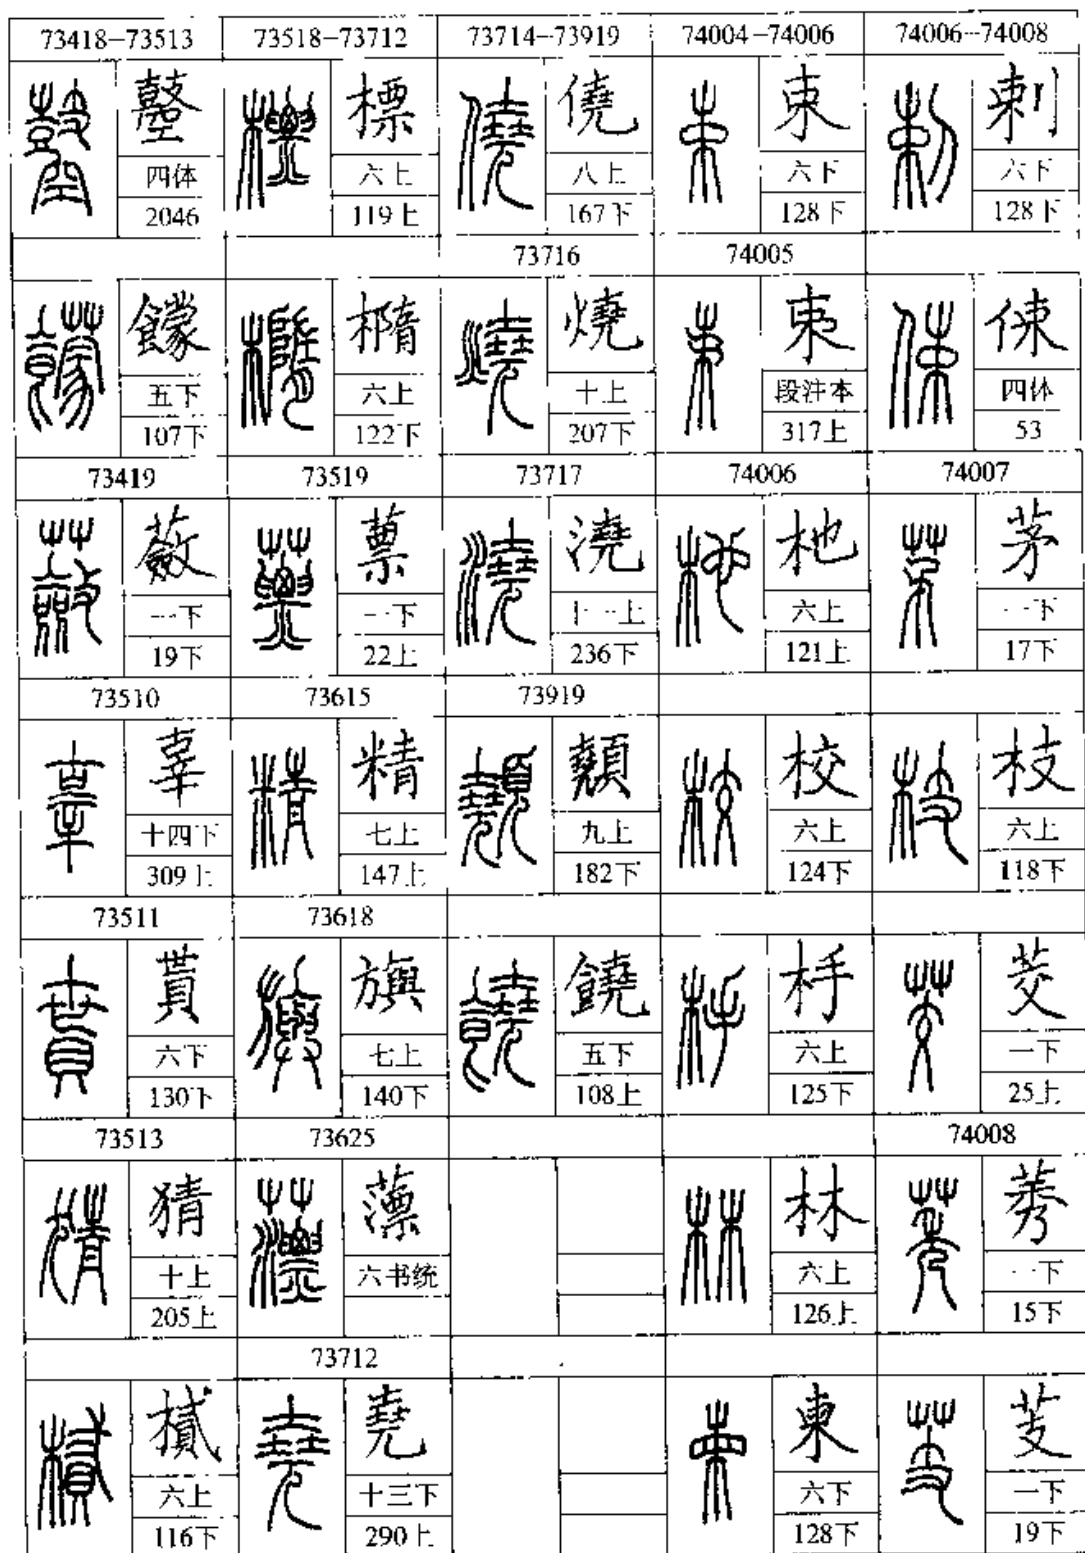 73418–73513
鼞
四体
2046
饛
五下
107下
73419
蘞
一下
19下
73510
辜
十四下
309上
73511
貰
六下
130下
73513
猜
十上
205上
樲
六上
116下
73518–73712
標
六上
119上
橢
六上
122下
73519
蔈
一下
22上
73615
精
七上
147上
73618
旟
七上
140下
73625
薸
六书统
73712
堯
十三下
290上
73714–73919
僥
八上
167下
73716
燒
十上
207下
73717
澆
十一上
236下
73919
九上
182下
饒
五下
108上
74004–74006
束
六下
128下
74005
段注本
317上
74006
杝
六上
121上
校
六上
124下
杽
六上
125下
林
六上
126上
六下
128下
74006–74008
剌
六下
128下
四体
53
74007
茅
一下
17下
枝
六上
118下
茭
一下
25上
74008
莠
一下
15下
芰
一下
19下